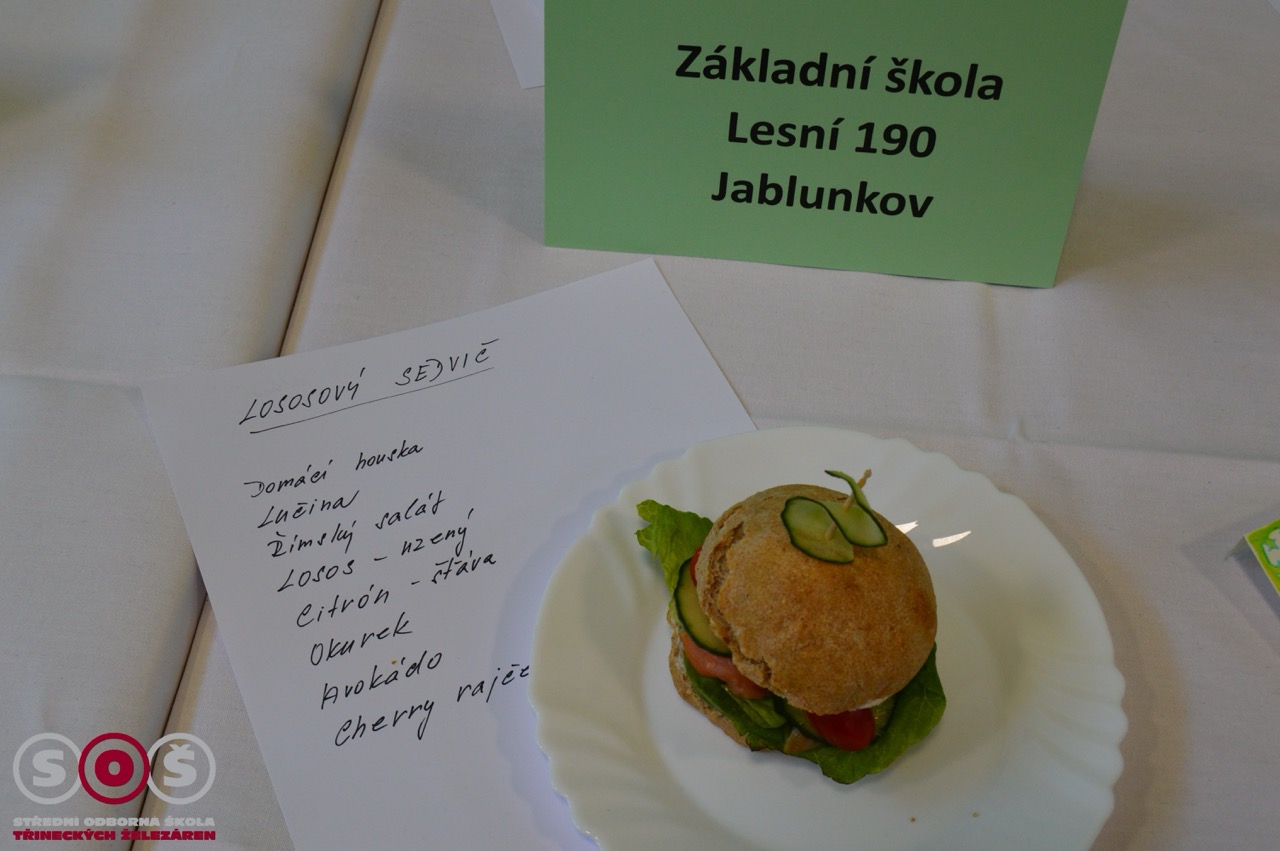 Základní škola
Lesní 190
Jablunkov
LOSOSOVÝ SEDVIČ
Domácí houska
Lučina
Římský salát
LOSOS - uzený
Citrón - šťáva
Okurek
Avokádo
Cherry rajče
SOŠ
STŘEDNÍ ODBORNÁ ŠKOLA
TŘINECKÝCH ŽELEZÁREN